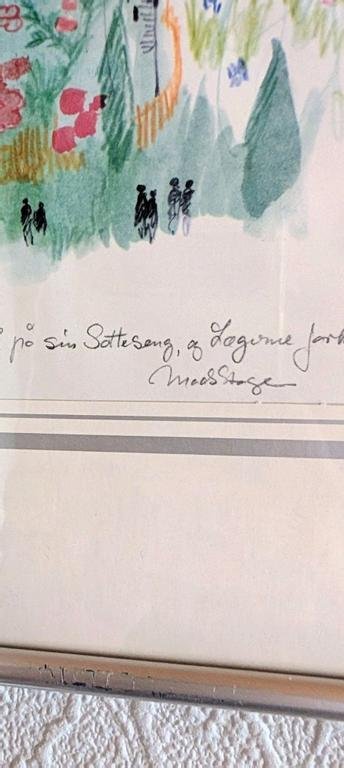 på sin Sotteseng, og Lægerne fork
Mads Stage